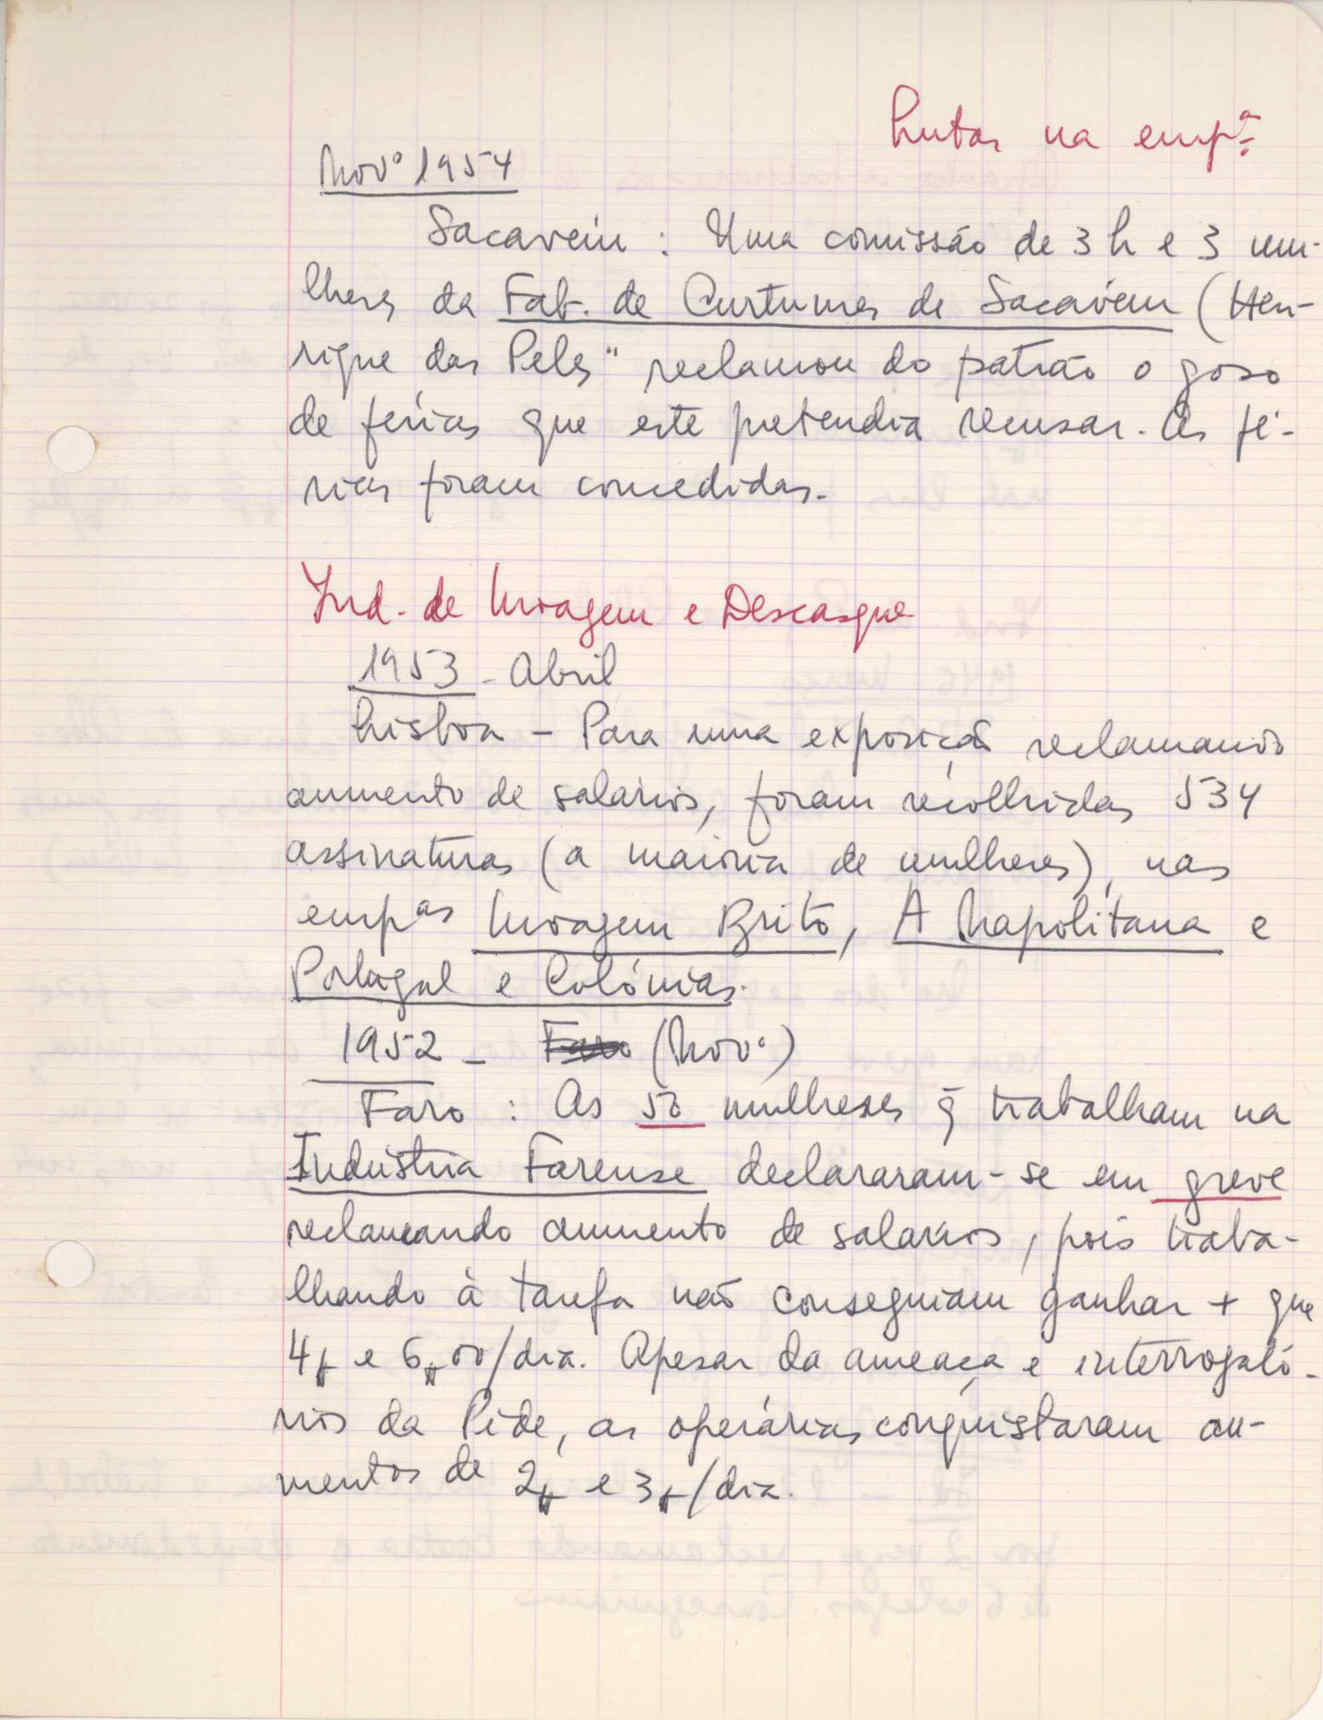 Lutas na empª
Novº 1954
Sacavém : Uma comissão de 3 h e 3 mu-
lheres da Fab. de Curtumes de Sacavém (Hen-
rique das Peles" reclamou do patrão o goso
de férias que este pretendia recusar. As fé-
rias foram concedidas.
Ind. de Moagem e Descasque
1953 - Abril
Lisboa - Para uma exposição reclamando
aumento de salários, foram recolhidas 534
assinaturas (a maioria de mulheres), nas
empas Moagem Brito, A Napolitana e
Portugal e Colónias.
1952 - Faro (Novº)
Faro : As 50 mulheres q̃ trabalham na
Indústria Farense declararam-se em greve
reclamando aumento de salários, pois traba-
lhando à tarefa não conseguiam ganhar + que
4$ e 6$00/dia. Apesar da ameaça e interrogató-
rios da Pide, as operárias conquistaram au-
mentos de 2$ e 3$/dia.